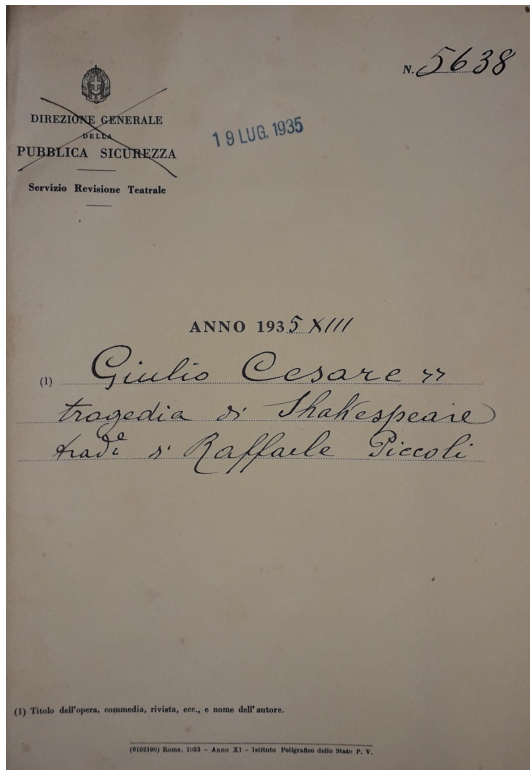 N. 5638
DIREZIONE GENERALE
DELLA
PUBBLICA SICUREZZA
Servizio Revisione Teatrale
19 LUG. 1935
ANNO 1935 XIII
(1) Giulio Cesare "
tragedia di Shakespeare
trad.e di Raffaele Piccoli
(1) Titolo dell'opera, commedia, rivista, ecc., e nome dell'autore.
(6102190) Roma, 1933 - Anno XI - Istituto Poligrafico dello Stato P. V.